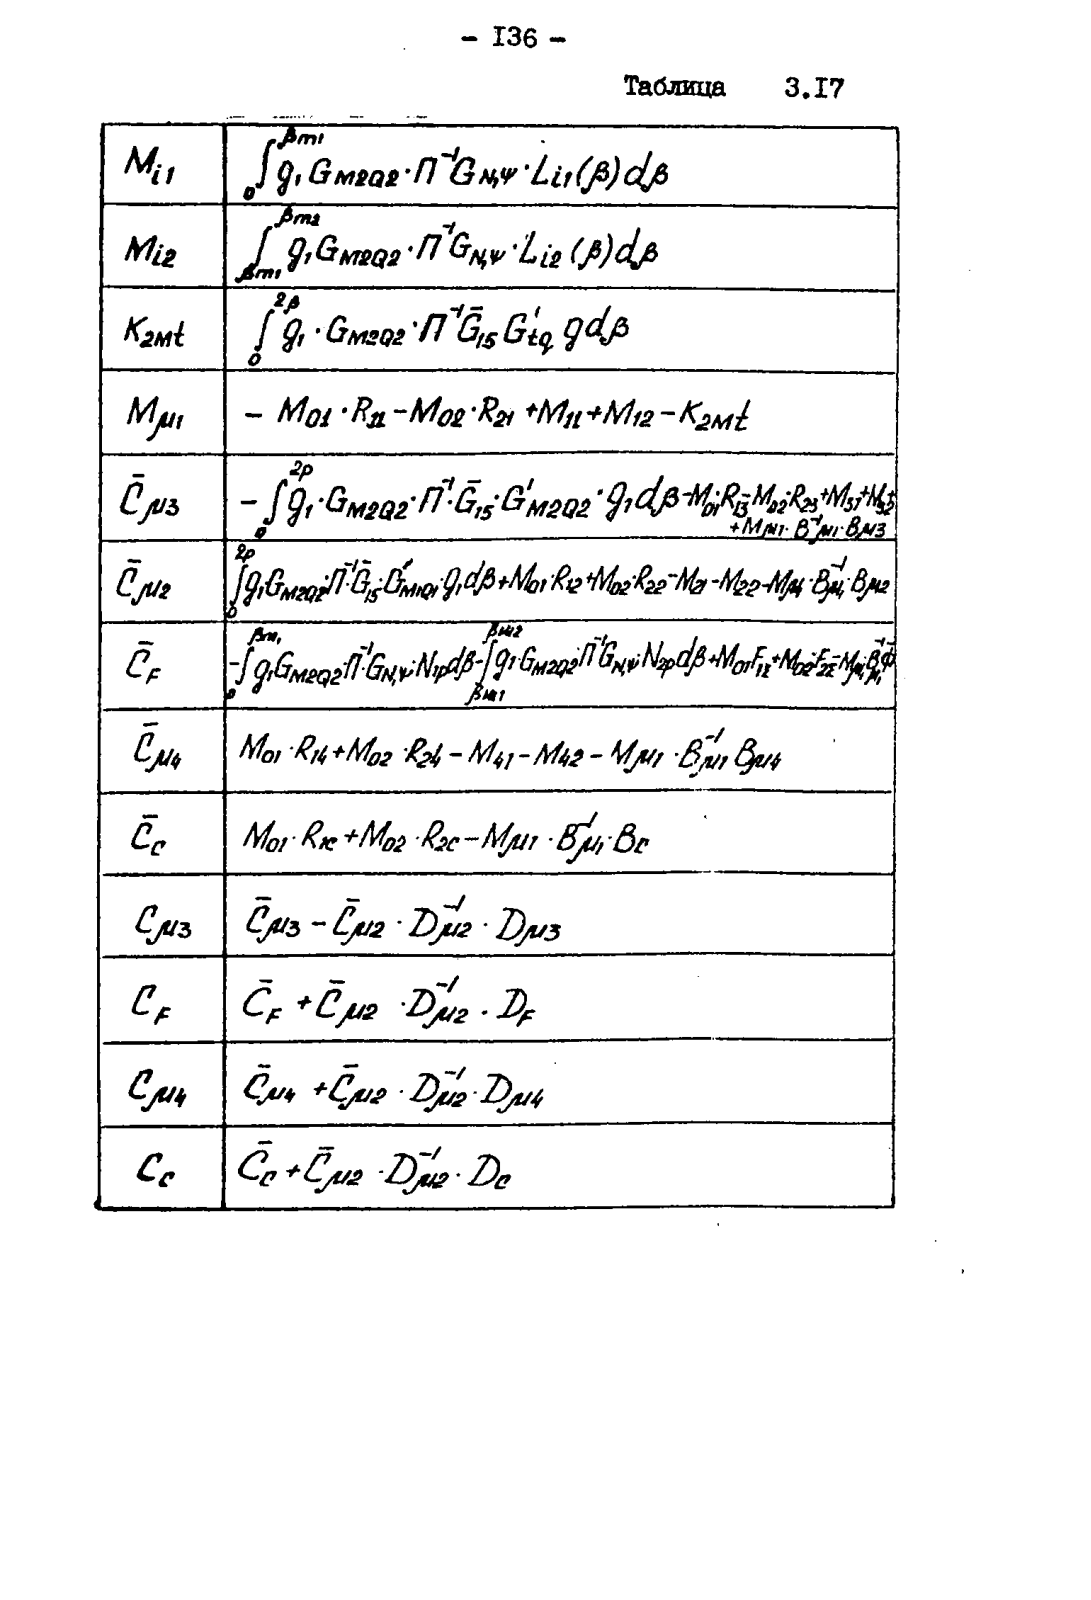 - I36 -
Таблица 3.I7
M_{i1} ∫_{0}^{β_{m1}} g_1 G_{M2Q2} · Π^{-1} G_{N,ψ} · L_{i1}(β) dβ
M_{i2} ∫_{β_{m1}}^{β_{m2}} g_1 G_{M2Q2} · Π^{-1} G_{N,ψ} · L_{i2}(β) dβ
K_{2Mt} ∫_{0}^{2β} g_1 · G_{M2Q2} · Π^{-1} Ḡ_{15} G'_{tq} g dβ
M_{μ1} - M_{01} · R_{11} - M_{02} · R_{21} + M_{11} + M_{12} - K_{2Mt}
C̄_{μ3} - ∫_{0}^{2β} g_1 · G_{M2Q2} · Π^{-1} · Ḡ_{15} · G'_{M2Q2} · g_1 dβ - M_{01} · R_{13} - M_{02} · R_{23} + M_{31} + M_{32} +
+ M_{μ1} · B^{-1}_{μ1} · B_{μ3}
C̄_{μ2} ∫_{0}^{2β} g_1 G_{M2Q2} · Π^{-1} · Ḡ_{15} · G'_{M1Q1} · g_1 dβ + M_{01} · R_{12} + M_{02} · R_{22} - M_{21} - M_{22} - M_{μ1} · B^{-1}_{μ1} · B_{μ2}
C̄_F - ∫_{0}^{β_{m1}} g_1 G_{M2Q2} · Π^{-1} · G_{N,ψ} · N_{1p} dβ - ∫_{β_{m1}}^{β_{m2}} g_1 · G_{M2Q2} · Π^{-1} G_{N,ψ} · N_{2p} dβ + M_{01} F_{1Σ} + M_{02} · F_{2Σ} - M_{μ1} · B^{-1}_{μ1} · Φ̄
C̄_{μ4} M_{01} · R_{14} + M_{02} · R_{24} - M_{41} - M_{42} - M_{μ1} · B^{-1}_{μ1} B_{μ4}
C̄_c M_{01} · R_{1c} + M_{02} · R_{2c} - M_{μ1} · B^{-1}_{μ1} · B_c
C_{μ3} C̄_{μ3} - C̄_{μ2} · D^{-1}_{μ2} · D_{μ3}
C_F C̄_F + C̄_{μ2} · D^{-1}_{μ2} . D_F
C_{μ4} C̄_{μ4} + C̄_{μ2} · D^{-1}_{μ2} · D_{μ4}
C_c C̄_c + C̄_{μ2} · D^{-1}_{μ2} · D_c